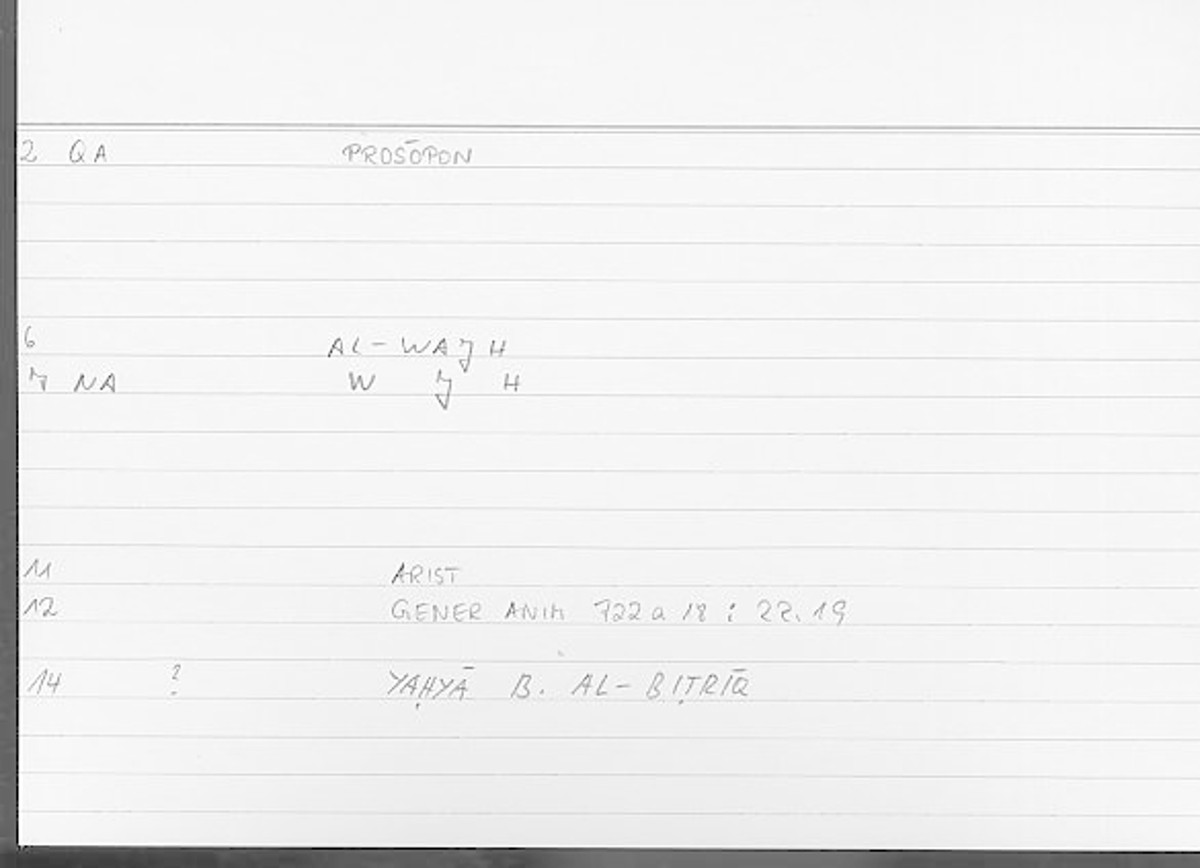 2 QA PROSŌPON
6 AL-WAJH
7 NA W J H
11 ARIST
12 GENER ANIM 722 a 18 : 22.19
14 ? YAḤYĀ B. AL-BIṬRĪQ